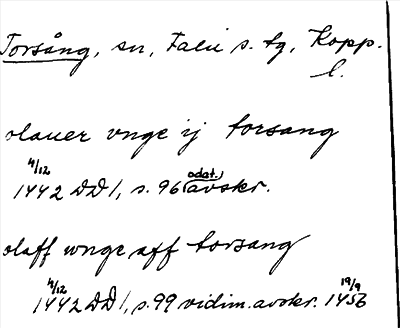 Torsång, sn, Falu s. tg, Kopp.
l.
olauer vnge ij torsang
4/12
1442 DD 1, s. 96 (odat.) avskr.
olaff wnge aff torsang
4/12
1442 DD 1, s. 99 vidim. avskr. 19/9 1456